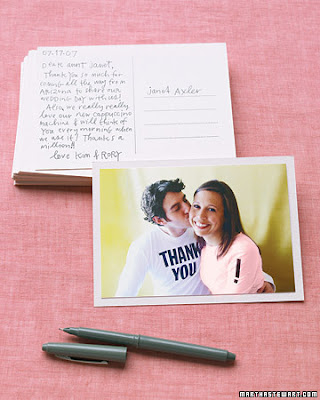 07.17.07
Dear Aunt Janet,
Thank you so much for
coming all the way from
Arizona to share our
wedding day with us!
Also, we really really
love our new cappuccino
machine & will think of
you every morning when
we use it! Thanks a
million!!
love Kim & Rory
Janet Axler
THANK
YOU
!
MARTHASTEWART.COM